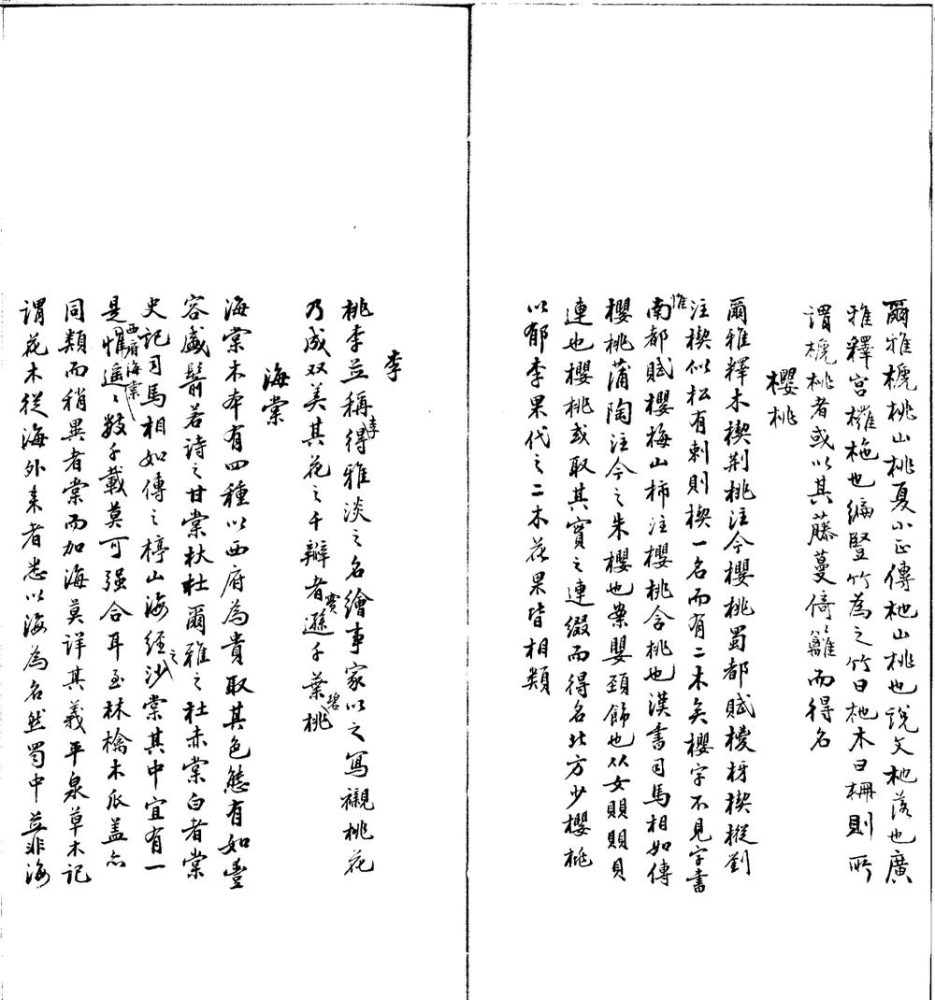 爾雅榹桃山桃夏小正傳杝山桃也說文杝落也廣
雅釋宮欏杝也編豎竹為之竹曰杝木曰柵則所
謂榹桃者或以其藤蔓倚籬而得名
櫻桃
爾雅釋木楔荊桃注今櫻桃蜀都賦櫌枒楔樅劉
注楔似松有刺則楔一名而有二木矣櫻字不見字書
惟南都賦櫻梅山柿注櫻桃含桃也漢書司馬相如傳
櫻桃蒲陶注今之朱櫻也案嬰頸飾也从女賏賏貝
連也櫻桃或取其實之連綴而得名北方少櫻桃
以郁李果代之二木花果皆相類
李
桃李並稱李得雅淡之名繪事家以之寫襯桃花
乃成双美其花之千瓣者實遜千葉碧桃
海棠
海棠木本有四種以西府為貴取其色態有如豊
容盛鬋若詩之甘棠杕杜爾雅之杜赤棠白者棠
史記司馬相如傳之楟山海經之沙棠其中宜有一
是西府海棠惟遙遙數千載莫可强合耳至林檎木瓜盖亦
同類而稍異者棠而加海莫詳其義平泉草木記
謂花木從海外来者悉以海為名然蜀中並非海